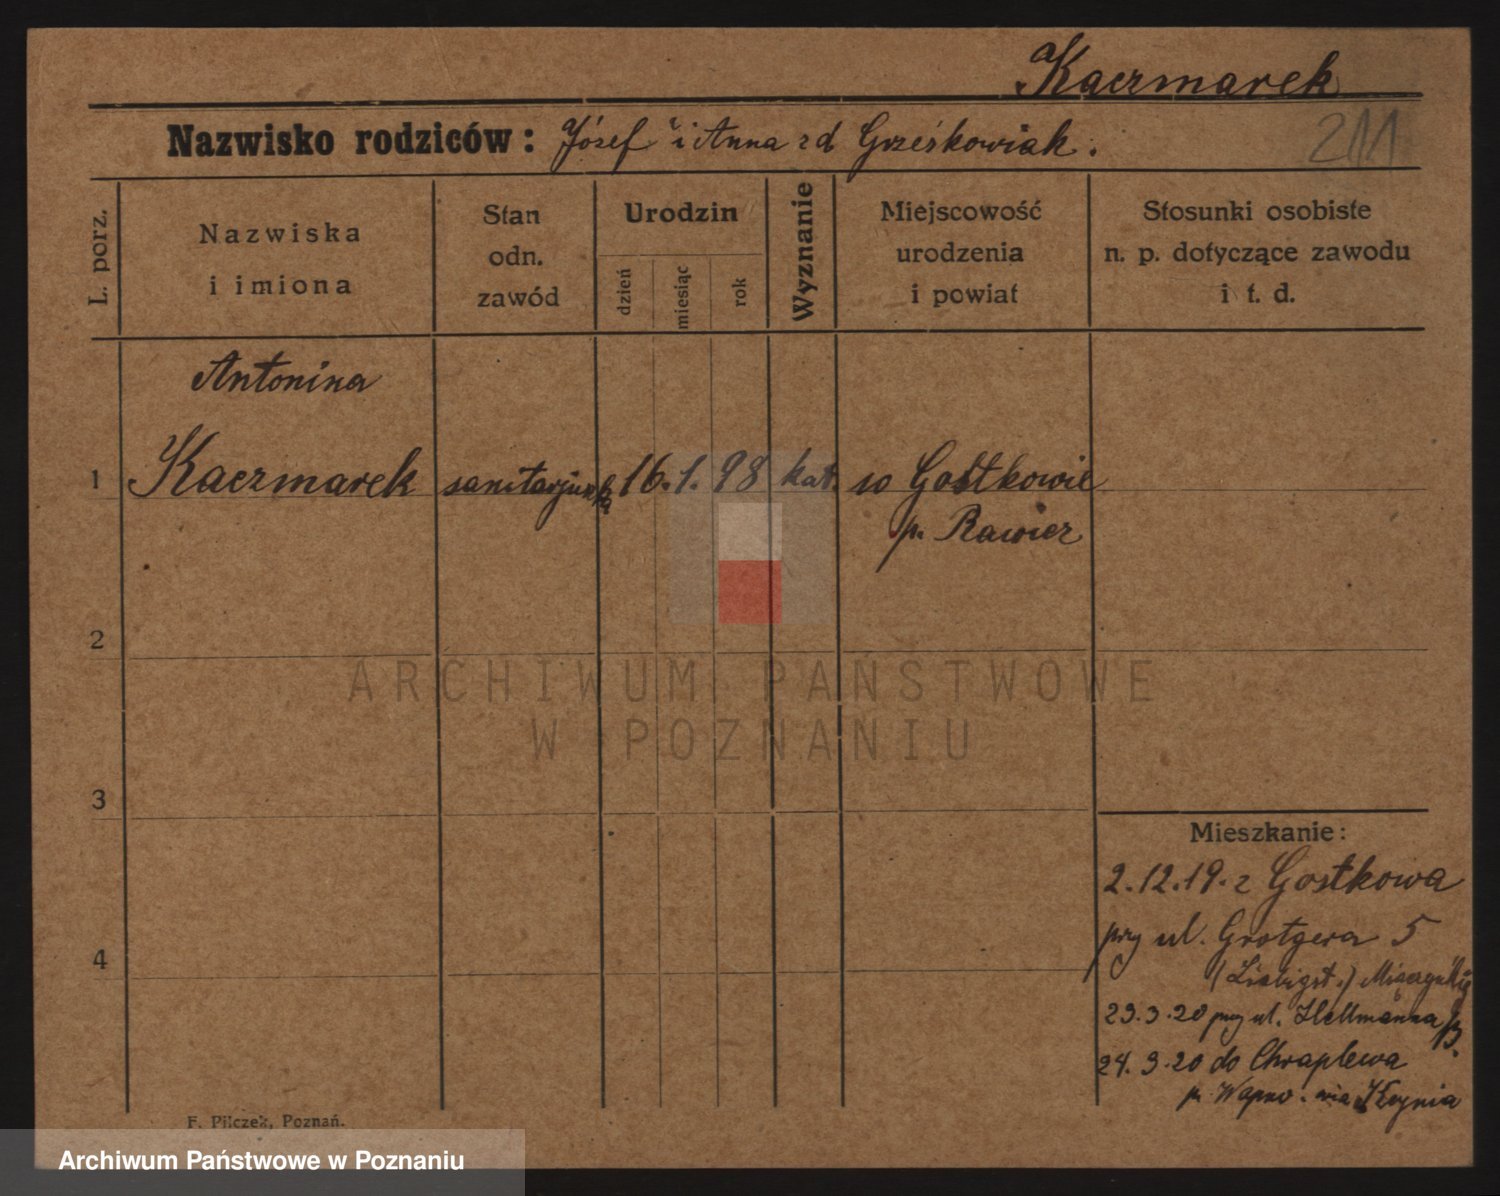 Kaczmarek
Nazwisko rodziców: Józef i Anna zd Grześkowiak.
211
L. porz.
Nazwiska i imiona
Stan odn. zawód
Urodzin
dzień
miesiąc
rok
Wyznanie
Miejscowość urodzenia i powiat
Stosunki osobiste n. p. dotyczące zawodu i t. d.
Antonina
1 Kaczmarek sanitarjuszka 16. 1. 98 kat. w Gostkowie
p. Rawicz
2
3
4
Mieszkanie:
2.12.19. z Gostkowa
przy ul. Grotgera 5
(Liebigst.)
23.3.20 przy ul. Hellmanna
24.3.20 do Chraplewa
p. Wapno. via Kcynia
F. Pilczek, Poznań.
ARCHIWUM PAŃSTWOWE
W POZNANIU
Archiwum Państwowe w Poznaniu